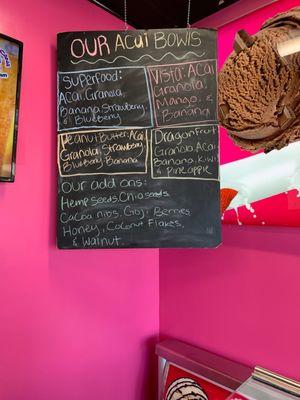 OUR ACai BOWlS
SUPerfood:
ACAI, Granola,
Banana, Strawberry,
& Blueberry
Vista: ACAI
Granola,
Mango, &
Banana
Peanut Butter: ACAI
Granola, Strawberry
Blueberry, Banana
Dragonfruit
Granola, ACAI
Banana, Kiwi,
& Pineapple
Our add ons:
Hemp seeds, Chia seeds
Cacoa nibs, Goji Berries
Honey, Coconut Flakes,
& Walnut.